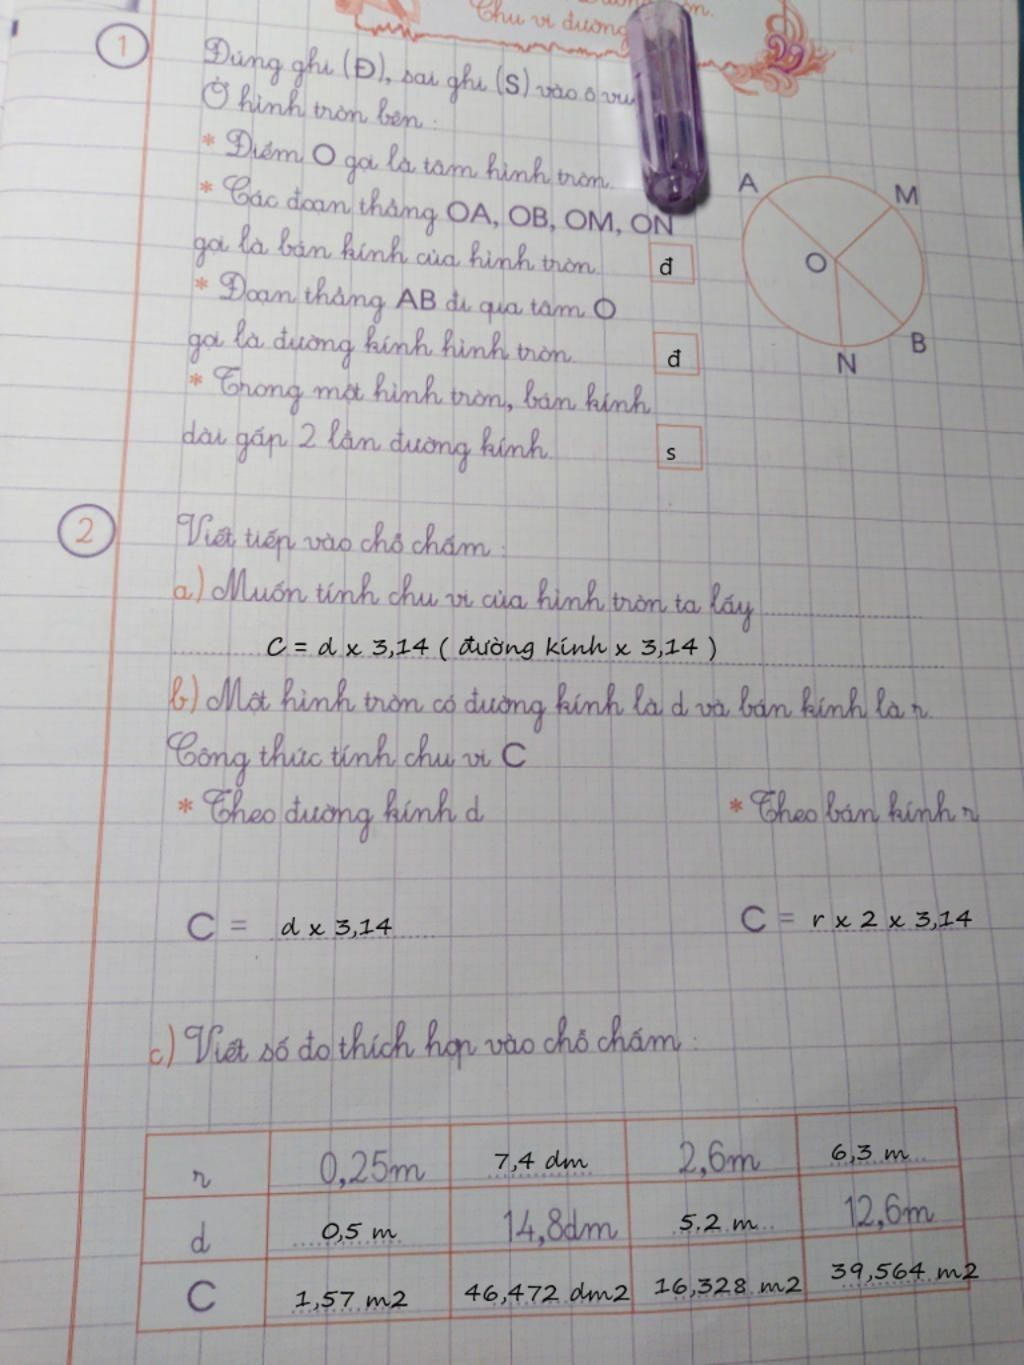 Chu vi đường
1
Đúng ghi (Đ), sai ghi (S) vào ô vu
Ở hình tròn bên :
* Điểm O gọi là tâm hình tròn.
* Các đoạn thẳng OA, OB, OM, ON
gọi là bán kính của hình tròn. đ
* Đoạn thẳng AB đi qua tâm O
gọi là đường kính hình tròn. đ
* Trong một hình tròn, bán kính
dài gấp 2 lần đường kính. s
A
M
O
B
N
2
Viết tiếp vào chỗ chấm :
a) Muốn tính chu vi của hình tròn ta lấy
C = d x 3,14 ( đường kính x 3,14 )
b) Một hình tròn có đường kính là d và bán kính là r.
Công thức tính chu vi C
* Theo đường kính d * Theo bán kính r
C = d x 3,14 C = r x 2 x 3,14
c) Viết số đo thích hợp vào chỗ chấm :
r 0,25m 7,4 dm 2,6m 6,3 m
d 0,5 m 14,8dm 5.2 m 12,6m
C 1,57 m2 46,472 dm2 16,328 m2 39,564 m2